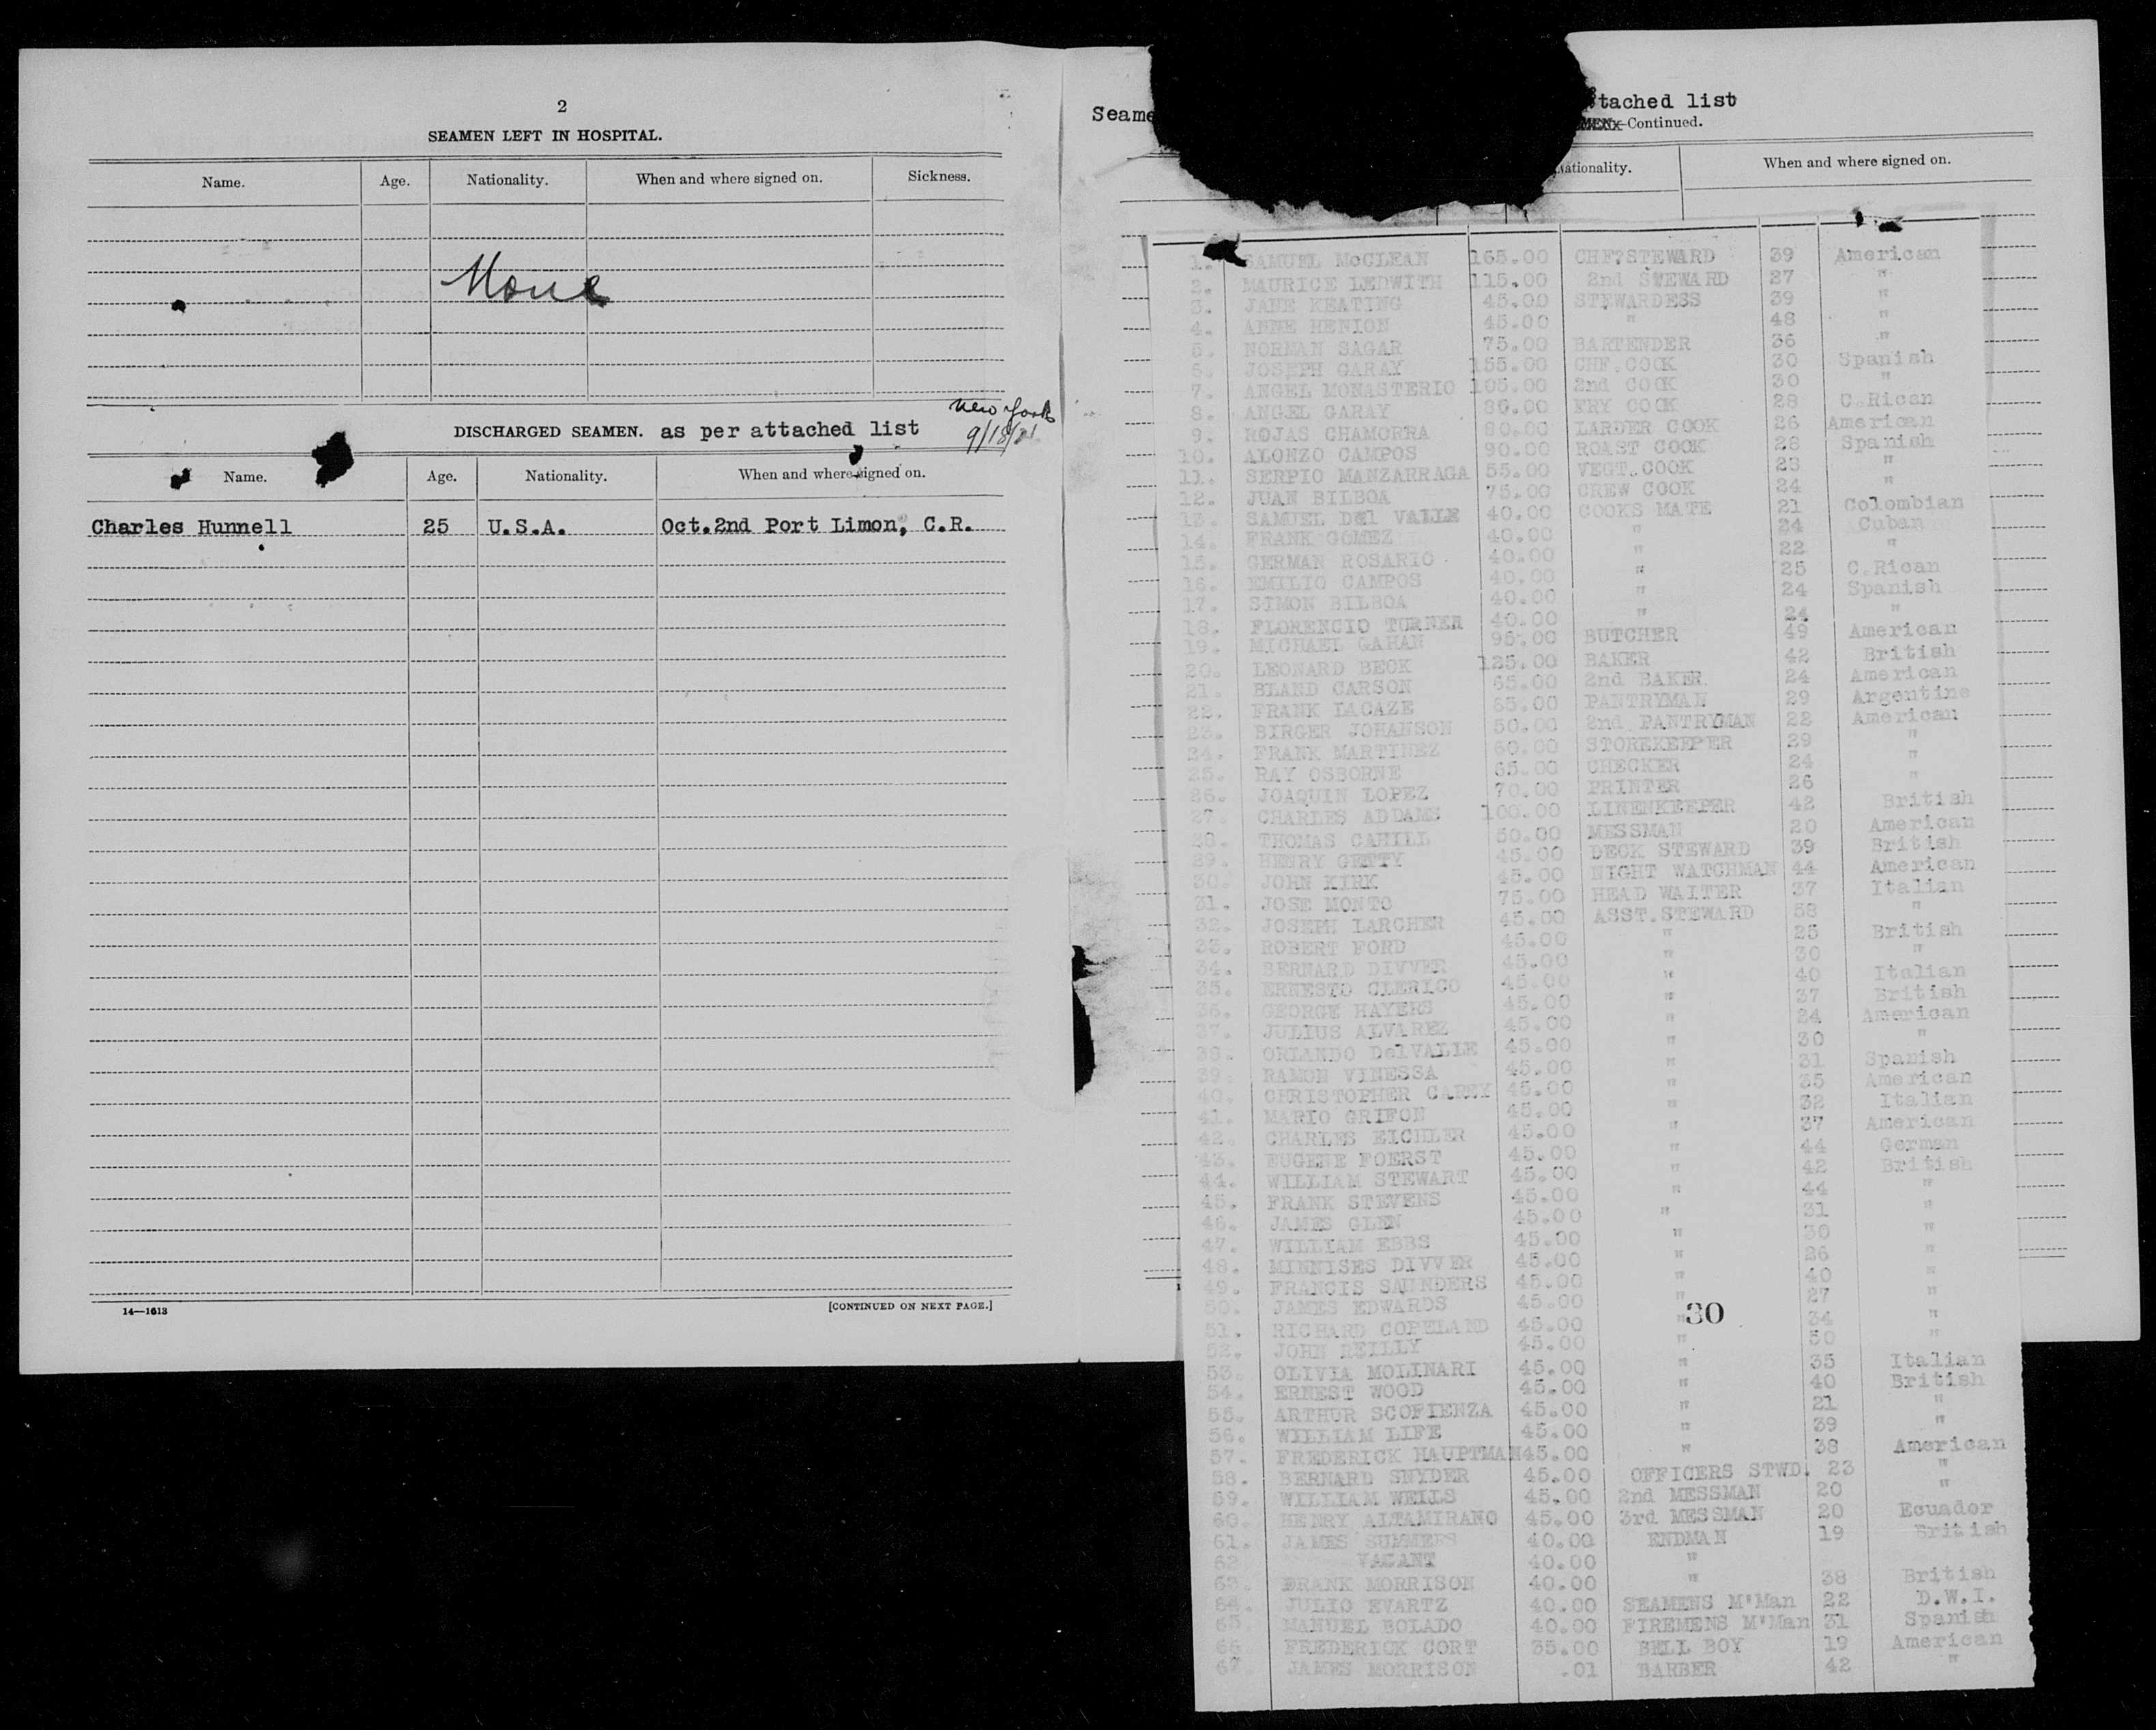 2
SEAMEN LEFT IN HOSPITAL.
Name. Age. Nationality. When and where signed on. Sickness.
None
New York
DISCHARGED SEAMEN. as per attached list 9/18/21
Name. Age. Nationality. When and where signed on.
Charles Hunnell 25 U.S.A. Oct.2nd Port Limon, C.R.
14—1613 [CONTINUED ON NEXT PAGE.]
Seame tached list
MEN Continued.
ationality. When and where signed on.
1. SAMUEL McCLEAN 165.00 CHF?STEWARD 39 American
2. MAURICE LEDWITH 115.00 2nd STEWARD 27 "
3. JANE KEATING 45.00 STEWARDESS 39 "
4. ANNE HENION 45.00 " 48 "
5. NORMAN SAGAR 75.00 BARTENDER 36 "
6. JOSEPH GARAY 155.00 CHF.COOK 30 Spanish
7. ANGEL MONASTERIO 105.00 2nd COOK 30 "
8. ANGEL GARAY 86.00 FRY COOK 28 C.Rican
9. ROJAS CHAMORRA 80.00 LARDER COOK 26 American
10. ALONZO CAMPOS 90.00 ROAST COOK 28 Spanish
11. SERPIO MANZARRAGA 55.00 VEGT.COOK 23 "
12. JUAN BILBOA 75.00 CREW COOK 24 "
13. SAMUEL Del VALLE 40.00 COOKS MATE 21 Colombian
14. FRANK GOMEZ 40.00 " 24 Cuban
15. GERMAN ROSARIO 40.00 " 22 "
16. EMILIO CAMPOS 40.00 " 25 C.Rican
17. SIMON BILBOA 40.00 " 24 Spanish
18. FLORENCIO TURNER 40.00 " 24 "
19. MICHAEL GAHAN 95.00 BUTCHER 49 American
20. LEONARD BECK 125.00 BAKER 42 British
21. BLAND CARSON 65.00 2nd BAKER 24 American
22. FRANK LACAZE 65.00 PANTRYMAN 29 Argentine
23. BIRGER JOHANSON 50.00 2nd PANTRYMAN 22 American
24. FRANK MARTINEZ 60.00 STOREKEEPER 29 "
25. RAY OSBORNE 65.00 CHECKER 24 "
26. JOAQUIN LOPEZ 70.00 PRINTER 26 "
27. CHARLES ADDAMS 100.00 LINENKEEPER 42 British
28. THOMAS CAHILL 50.00 MESSMAN 20 American
29. HENRY GETTY 45.00 DECK STEWARD 39 British
30. JOHN KIRK 45.00 NIGHT WATCHMAN 44 American
31. JOSE MONTO 75.00 HEAD WAITER 37 Italian
32. JOSEPH LARCHER 45.00 ASST.STEWARD 58 "
33. ROBERT FORD 45.00 " 25 British
34. BERNARD DIVVER 45.00 " 30 "
35. ERNESTO CLERICO 45.00 " 40 Italian
36. GEORGE HAYERS 45.00 " 37 British
37. JULIUS ALVAREZ 45.00 " 24 American
38. ORLANDO DelVALLE 45.00 " 30 "
39. RAMON VINESSA 45.00 " 31 Spanish
40. CHRISTOPHER CAREY 45.00 " 35 American
41. MARIO GRIFON 45.00 " 32 Italian
42. CHARLES EICHLER 45.00 " 37 American
43. EUGENE FOERST 45.00 " 44 German
44. WILLIAM STEWART 45.00 " 42 British
45. FRANK STEVENS 45.00 " 44 "
46. JAMES GLEN 45.00 " 31 "
47. WILLIAM EBBS 45.00 " 30 "
48. MINNISES DIVVER 45.00 " 26 "
49. FRANCIS SAUNDERS 45.00 " 40 "
50. JAMES EDWARDS 45.00 " 27 "
51. RICHARD COPELAND 45.00 " 34 "
30
52. JOHN REILLY 45.00 " 50 "
53. OLIVIA MOLINARI 45.00 " 35 Italian
54. ERNEST WOOD 45.00 " 40 British
55. ARTHUR SCOFIENZA 45.00 " 21 "
56. WILLIAM LIFE 45.00 " 39 "
57. FREDERICK HAUPTMAN 45.00 " 38 American
58. BERNARD SNYDER 45.00 OFFICERS STWD. 23 "
59. WILLIAM WELLS 45.00 2nd MESSMAN 20 "
60. HENRY ALTAMIRANO 45.00 3rd MESSMAN 20 Ecuador
61. JAMES SUMMERS 40.00 ENDMAN 19 British
62 VACANT 40.00 "
63. FRANK MORRISON 40.00 " 38 British
64. JULIO EVARTZ 40.00 SEAMENS M'Man 22 D.W.I.
65 MANUEL BOLADO 40.00 FIREMENS M'Man 31 Spanish
66 FREDERICK CORT 35.00 BELL BOY 19 American
67 JAMES MORRISON .01 BARBER 42 "